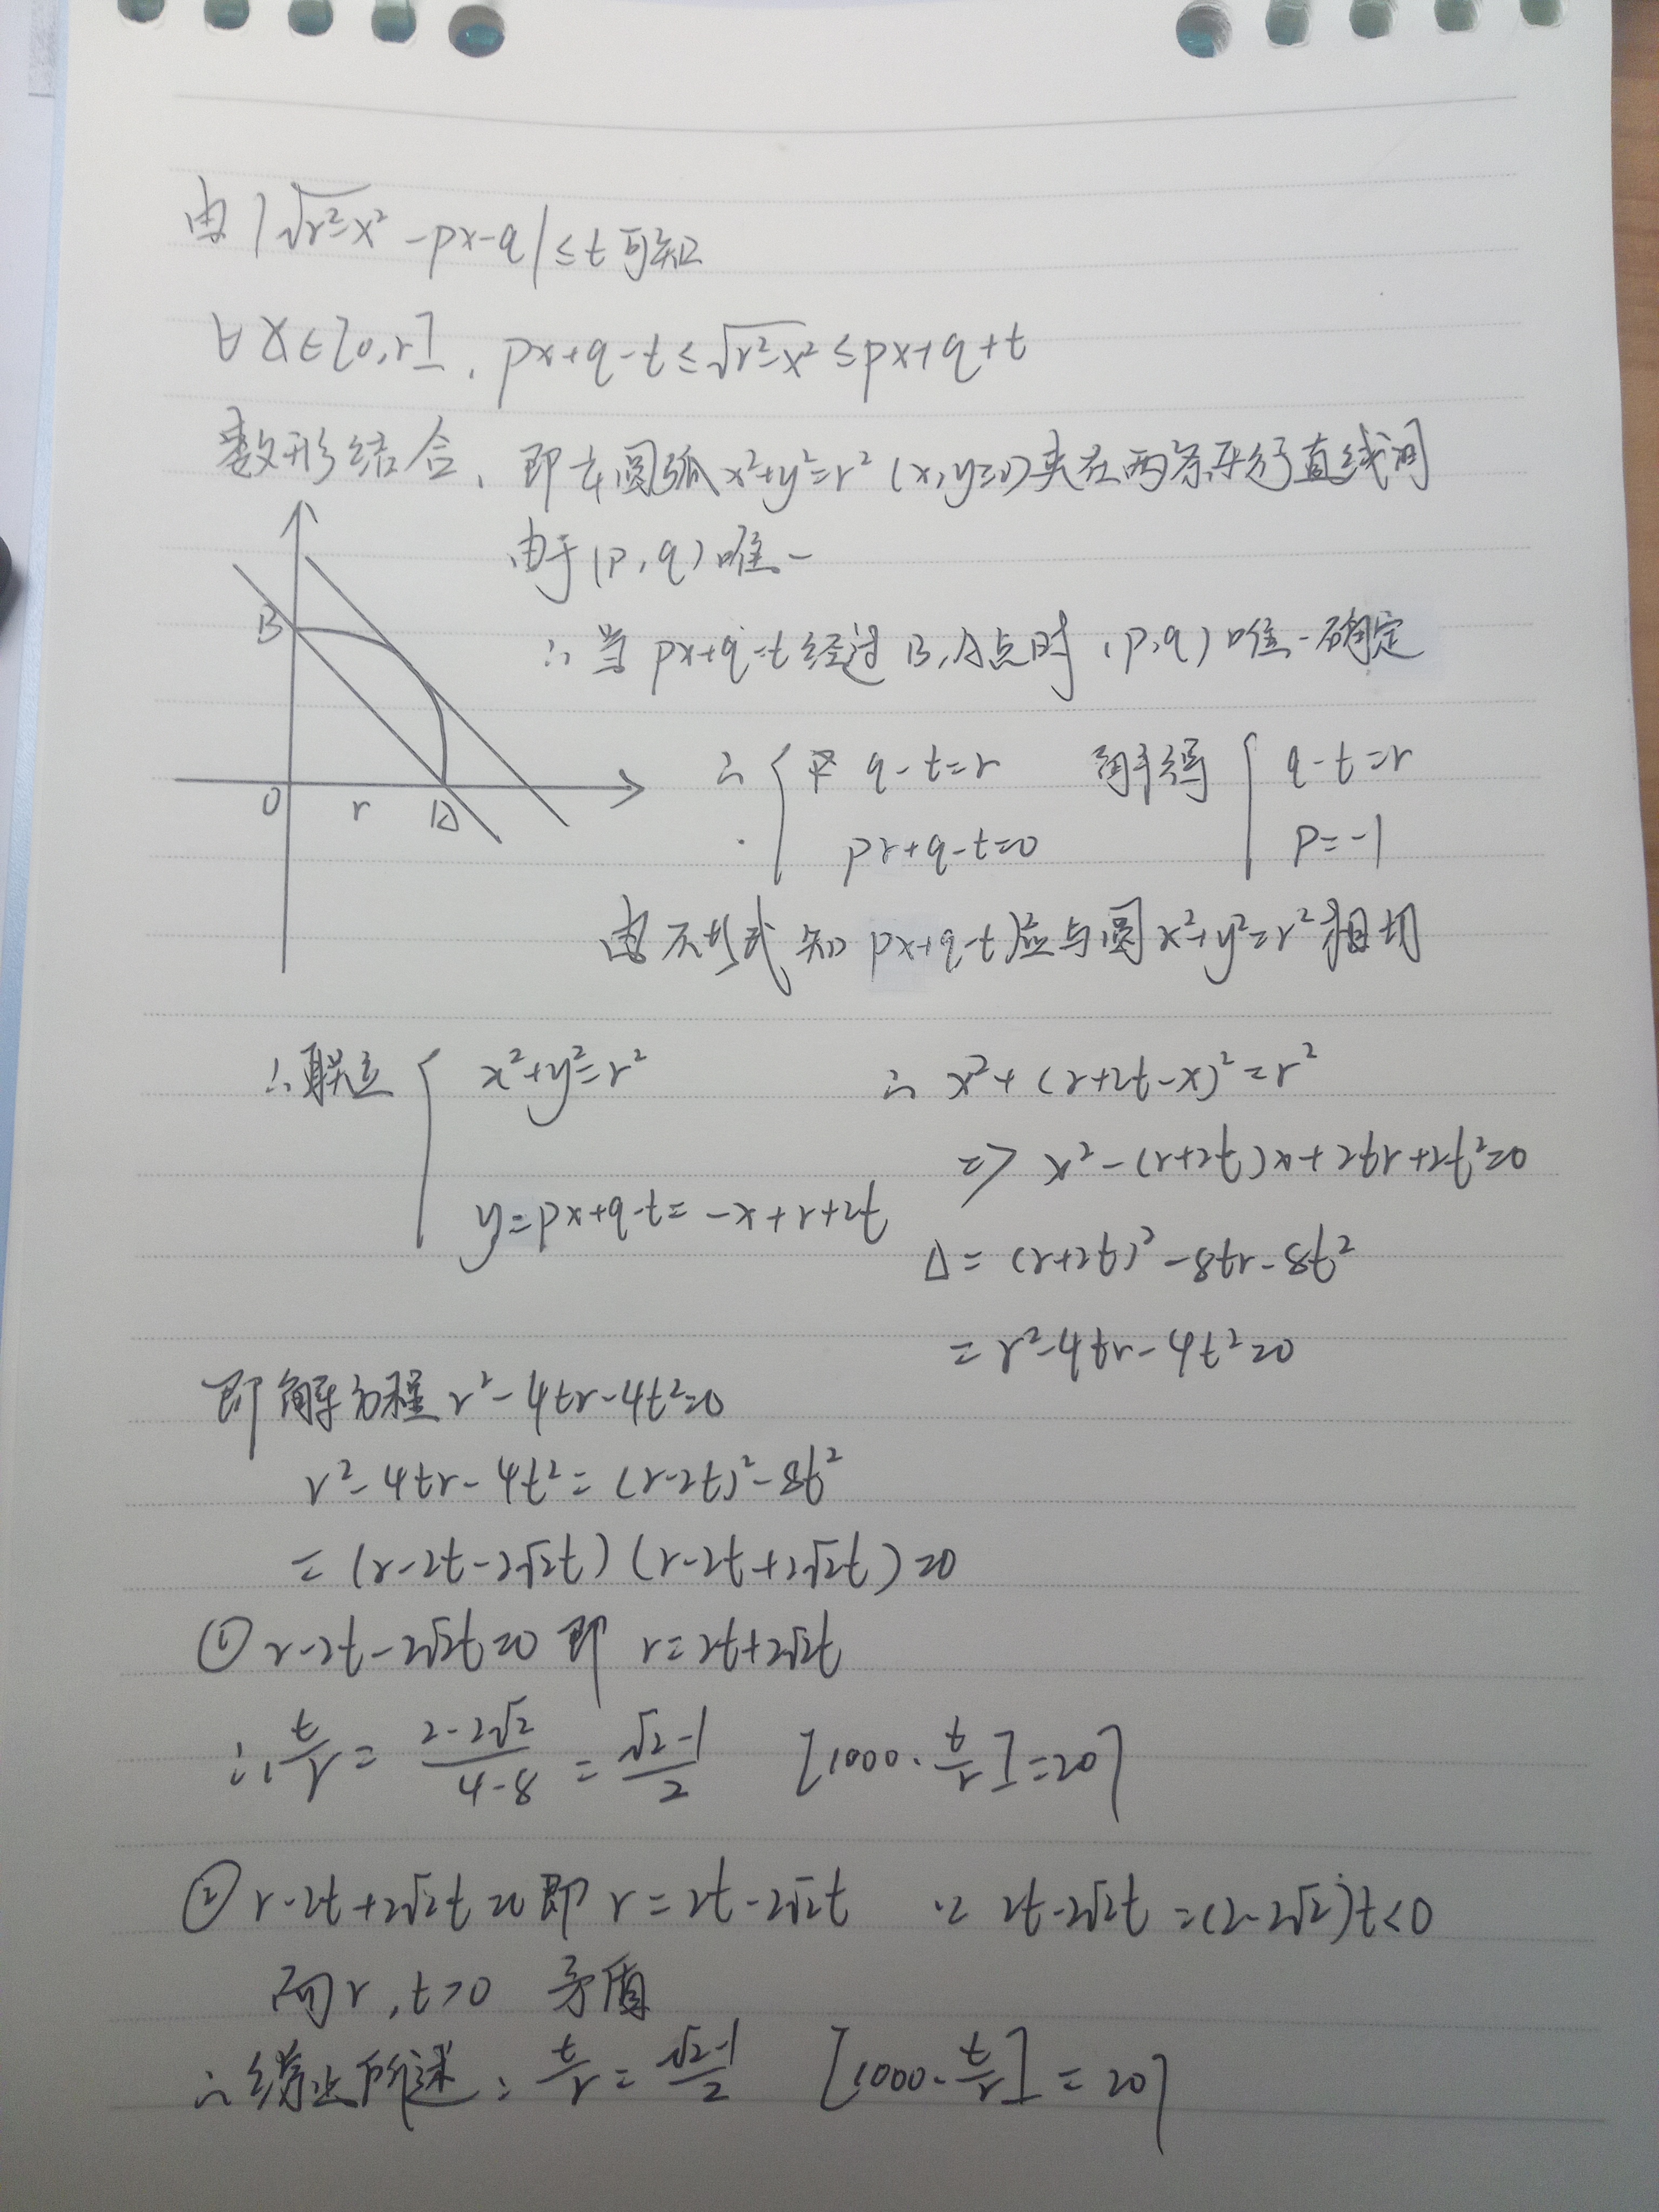 由|√(r²-x²) -px-q|≤t可知
∀x∈[0,r], px+q-t≤√(r²-x²)≤px+q+t
数形结合, 即圆弧x²+y²=r² (x,y≥0)夹在两条平行直线间
由于(p,q)唯一
∴当px+q-t经过B,A点时,(p,q)唯一确定
B
O r A
∴ { q-t=r 解得 { q-t=r
pr+q-t=0 p=-1
由不等式知px+q-t应与圆x²+y²=r²相切
∴联立 { x²+y²=r² ∴ x²+(r+2t-x)²=r²
=> x²-(r+2t)x+2tr+2t²=0
y=px+q-t=-x+r+2t
Δ=(r+2t)²-8tr-8t²
=r²-4tr-4t²=0
即解方程r²-4tr-4t²=0
r²-4tr-4t²=(r-2t)²-8t²
=(r-2t-2√2t)(r-2t+2√2t)=0
① r-2t-2√2t=0即 r=2t+2√2t
∴t/r=(2-2√2)/(4-8)=(√2-1)/2 [1000·t/r]=207
② r-2t+2√2t=0即r=2t-2√2t ∵2t-2√2t=(2-2√2)t<0
而r,t>0 矛盾
∴综上所述:t/r=(√2-1)/2 [1000·t/r]=207